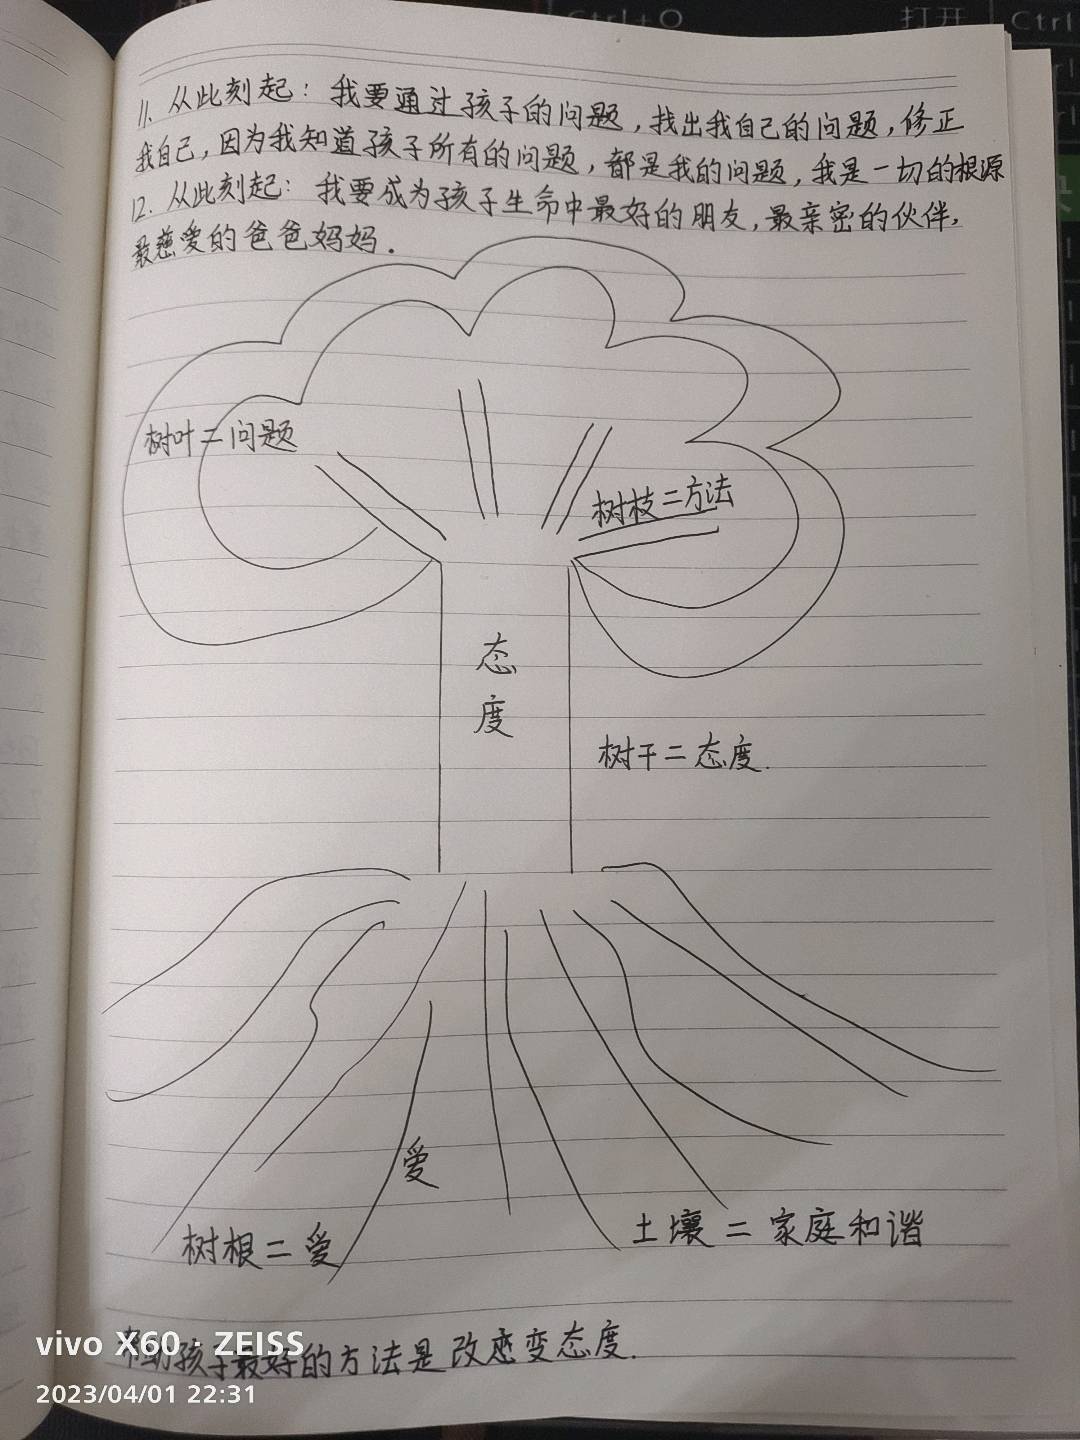 Ctrl+O
打开
Ctrl
11. 从此刻起：我要通过孩子的问题，找出我自己的问题，修正
我自己，因为我知道孩子所有的问题，都是我的问题，我是一切的根源
12. 从此刻起：我要成为孩子生命中最好的朋友，最亲密的伙伴，
最慈爱的爸爸妈妈.
树叶=问题
树枝=方法
态
度
树干=态度.
爱
树根=爱
土壤=家庭和谐
孩子最好的方法是改变态度.
vivo X60 · ZEISS
2023/04/01 22:31